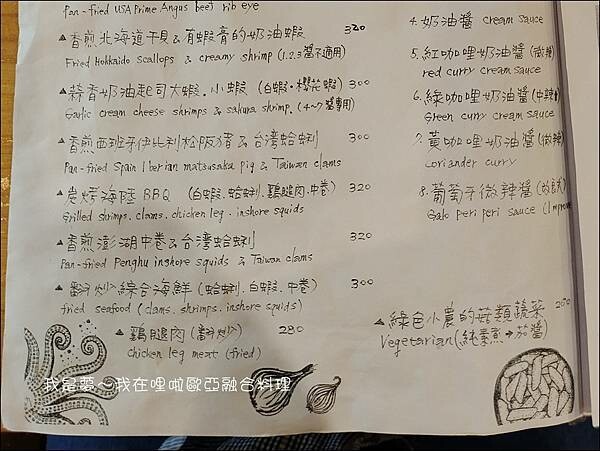 Pan-fried USA Prime Angus beef rib eye
▲香煎北海道干貝&有蝦膏的奶油蝦 320
Fried Hokkaido scallops & creamy shrimp (1.2.3醬不適用)
▲蒜香奶油起司大蝦.小蝦 (白蝦·櫻花蝦) 300
Garlic cream cheese shrimps & sakura shrimp. (4~7醬專用)
▲香煎西班牙伊比利松阪猪&台灣蛤蜊 300
Pan-fried Spain Iberian matsusaka pig & Taiwan clams
▲炭烤海陸BBQ (白蝦.蛤蜊.鷄腿肉.中卷) 320
Grilled shrimps. clams. chicken leg. inshore squids
▲香煎澎湖中卷&台灣蛤蜊 320
Pan-fried Penghu inshore squids & Taiwan clams
▲翻炒綜合海鮮(蛤蜊.白蝦.中卷) 300
fried seafood (clams. shrimps. inshore squids)
▲鷄腿肉(翻炒) 280
chicken leg meat (fried)
4.奶油醬 cream sauce
5.紅咖哩奶油醬(微辣)
red curry cream sauce
6.綠咖哩奶油醬(中辣
Green curry cream sauce
7.黃咖哩奶油醬(微辣
Coriander curry
8.葡萄牙微辣醬
Galo peri peri sauce (Improve
▲綠色小農的莓類蔬菜 260
Vegetarian(純素煮→茄醬)
我是夢～我在哩啦歐亞融合料理